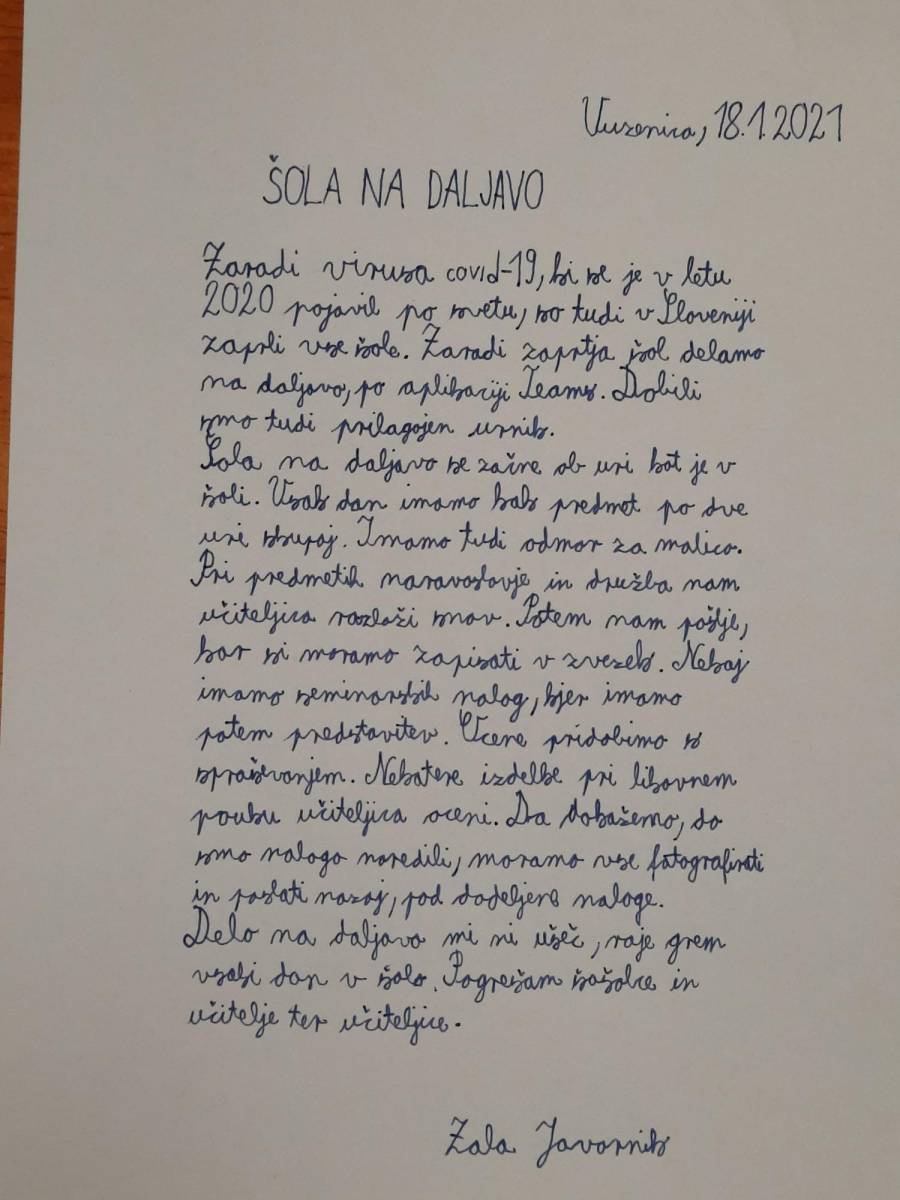 Vuzenica, 18.1.2021
ŠOLA NA DALJAVO
Zaradi virusa covid-19, ki se je v letu
2020 pojavil po svetu, so tudi v Sloveniji
zaprli vse šole. Zaradi zaprtja šol delamo
na daljavo, po aplikaciji Teams. Dobili
smo tudi prilagojen urnik.
Šola na daljavo se začne ob uri kot je v
šoli. Vsak dan imamo kak predmet po dve
uri skupaj. Imamo tudi odmor za malico.
Pri predmetih naravoslovje in družba nam
učiteljica razloži snov. Potem nam pošlje,
kar si moramo zapisati v zvezek. Nekaj
imamo seminarskih nalog, kjer imamo
potem predstavitev. Ocene pridobimo s
spraševanjem. Nekatere izdelke pri likovnem
pouku učiteljica oceni. Da dokažemo, da
smo nalogo naredili, moramo vse fotografirati
in poslati nazaj, pod dodeljene naloge.
Delo na daljavo mi ni všeč, raje grem
vsaki dan v šolo. Pogrešam sošolce in
učitelje ter učiteljice.
Zala Javornik